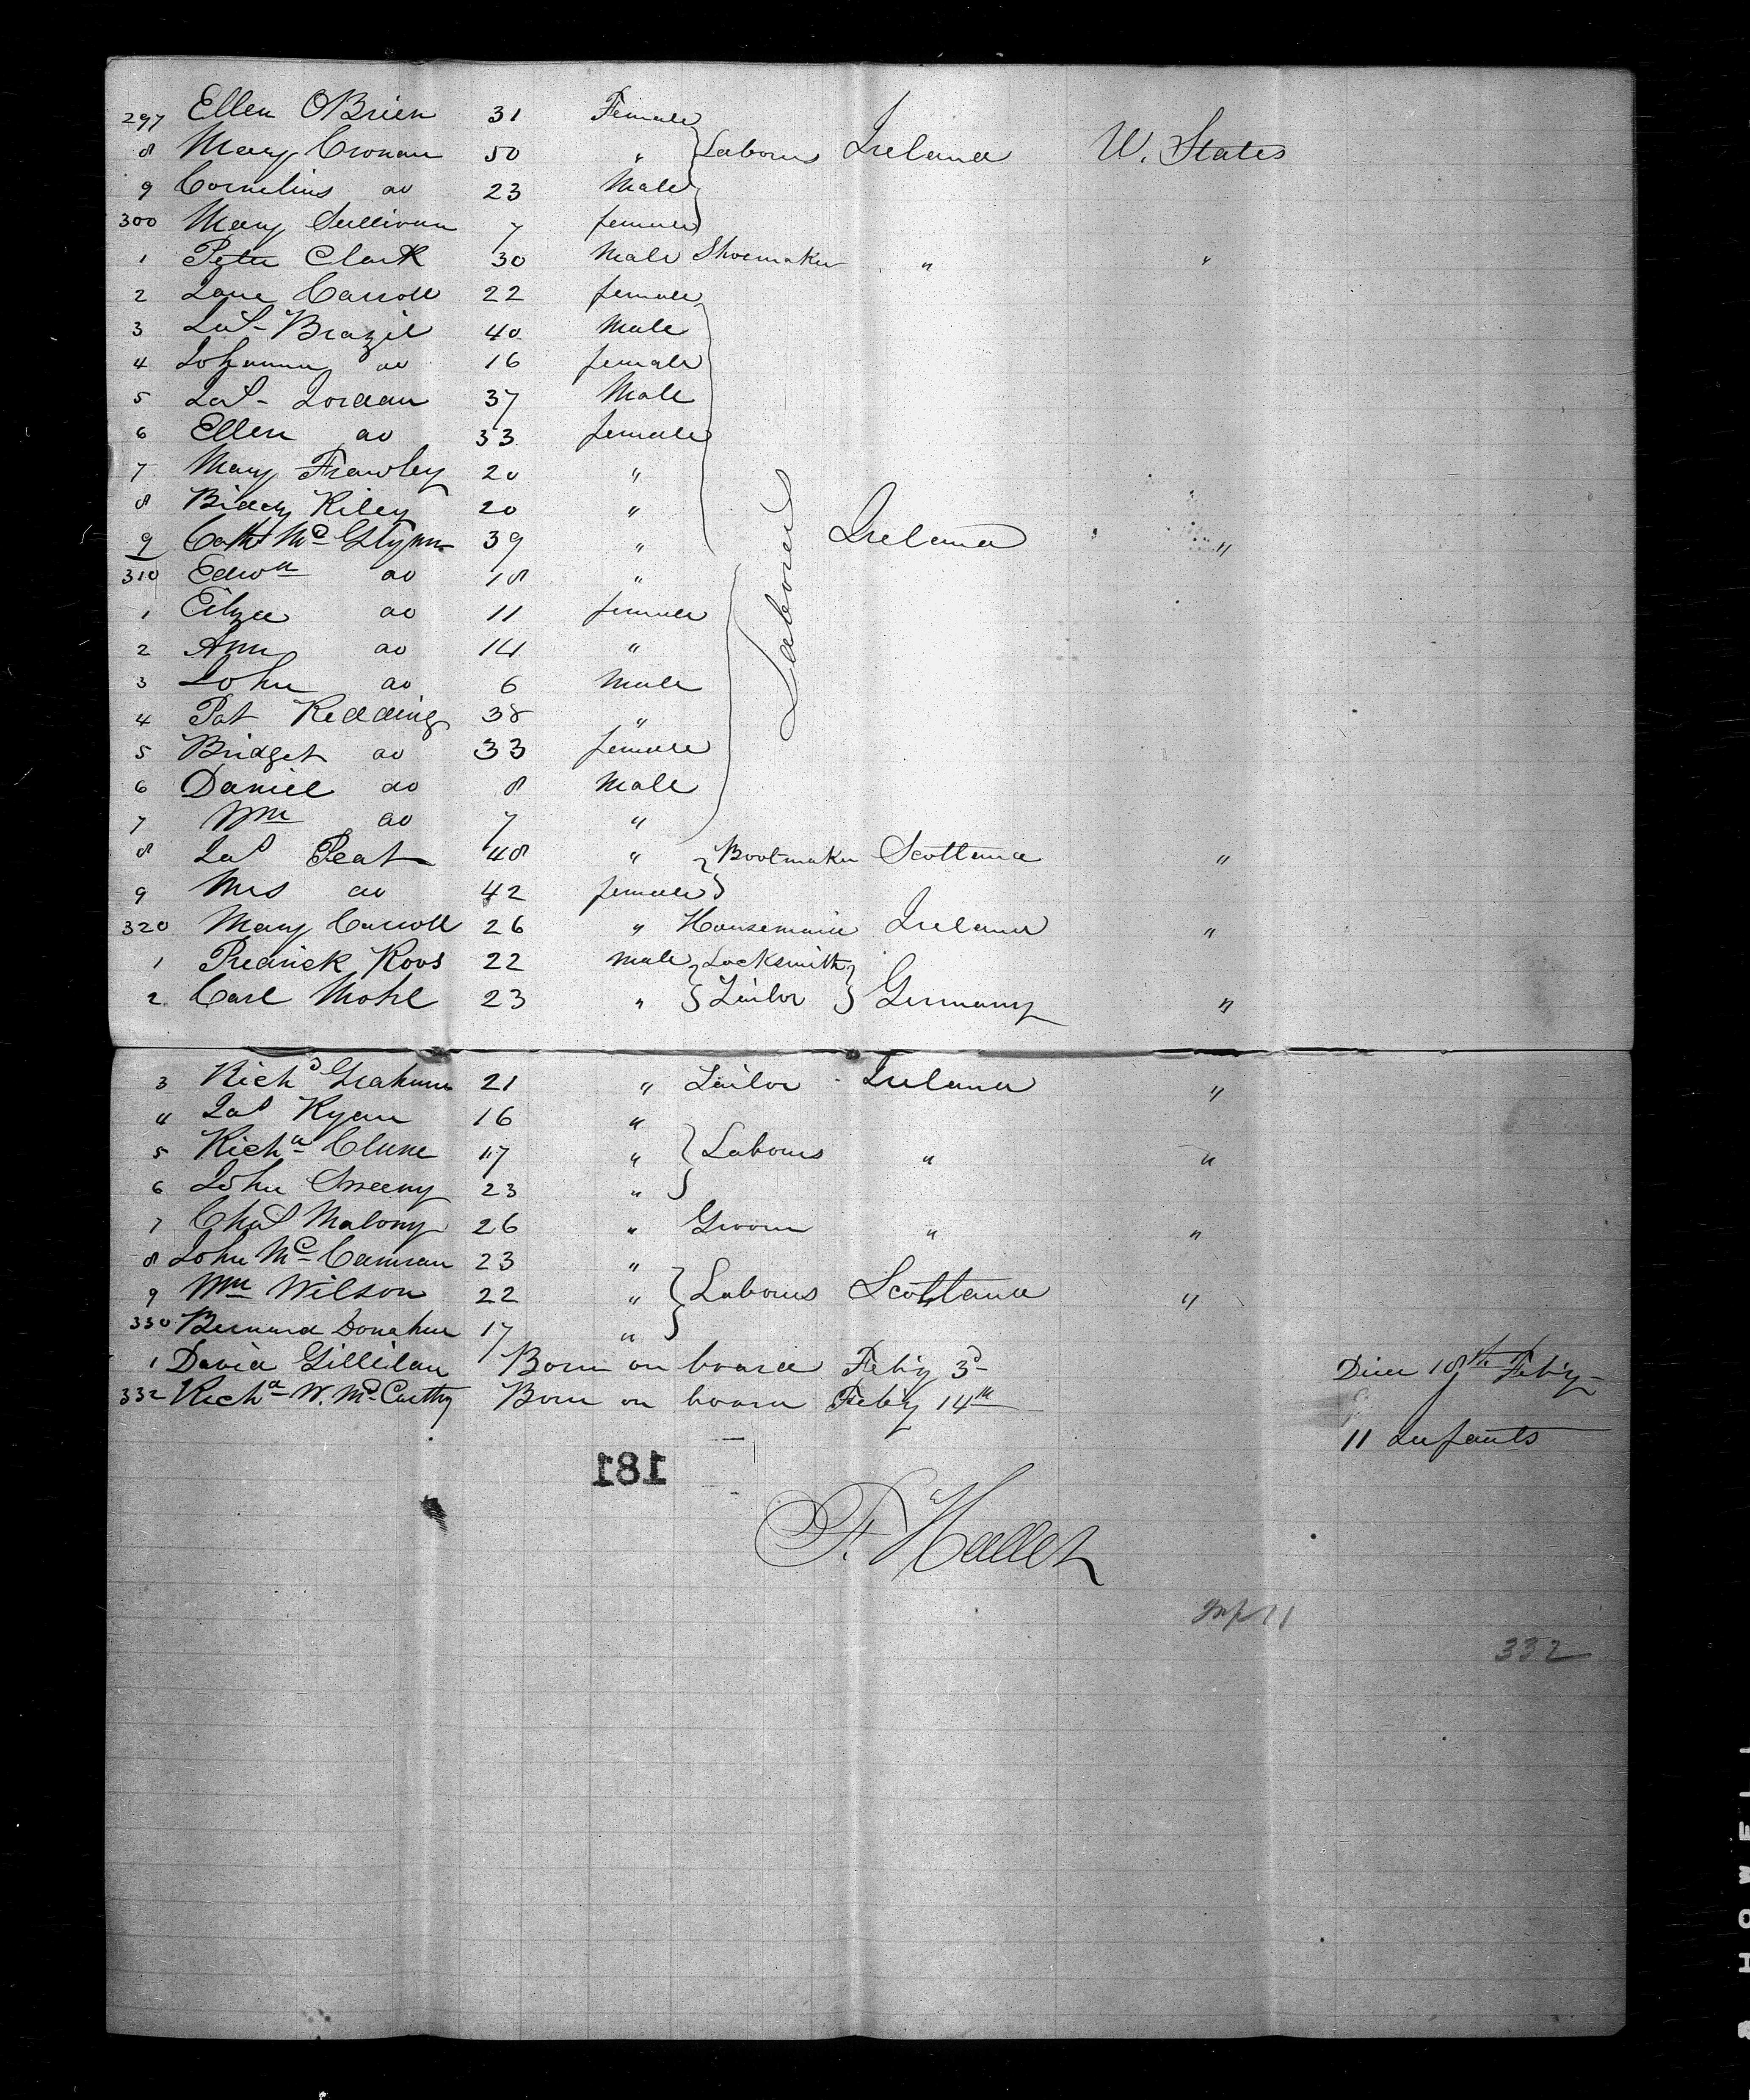 297 Ellen OBrien 31 Female
8 Mary Cronan 50 " Labours Ireland U. States
9 Cornelius do 23 Male
300 Mary Sullivan 7 female
1 Peter Clark 30 Male Shoemaker " "
2 Jane Carroll 22 female
3 Jas Brazil 40 Male
4 Johanna do 16 female
5 Jas Jordan 37 Male
6 Ellen do 33 female
7 Mary Frawley 20 "
8 Biddy Riley 20 "
9 Cath Mc Glynn 39 " Labours Ireland "
310 Edwd do 18 "
1 Eliza do 11 female
2 Ann do 14 "
3 John do 6 Male
4 Pat Redding 38 "
5 Bridget do 33 female
6 Daniel do 8 Male
7 Wm do 7 "
8 Jas Peat 48 " Bootmaker Scotland "
9 Mrs do 42 female
320 Mary Carroll 26 " Housemaid Ireland "
1 Fredrick Roos 22 Male Locksmith
2 Carl Mohl 23 " Tailor Germany "
3 Richd Graham 21 " Tailor Ireland "
4 Jas Ryan 16 "
5 Richd Clune 17 " Labours " "
6 John Sweeny 23 "
7 Chas Malony 26 " Groom " "
8 John Mc Camran 23 "
9 Wm Wilson 22 " Labours Scotland "
330 Bernard Donahue 17 "
1 David Gillilan Born on board Feby 3d Died 18th Feby
332 Richd W. Mc Carthy Born on board Feby 14th
11 Infants
181
F. Hallet
Inf 11
332